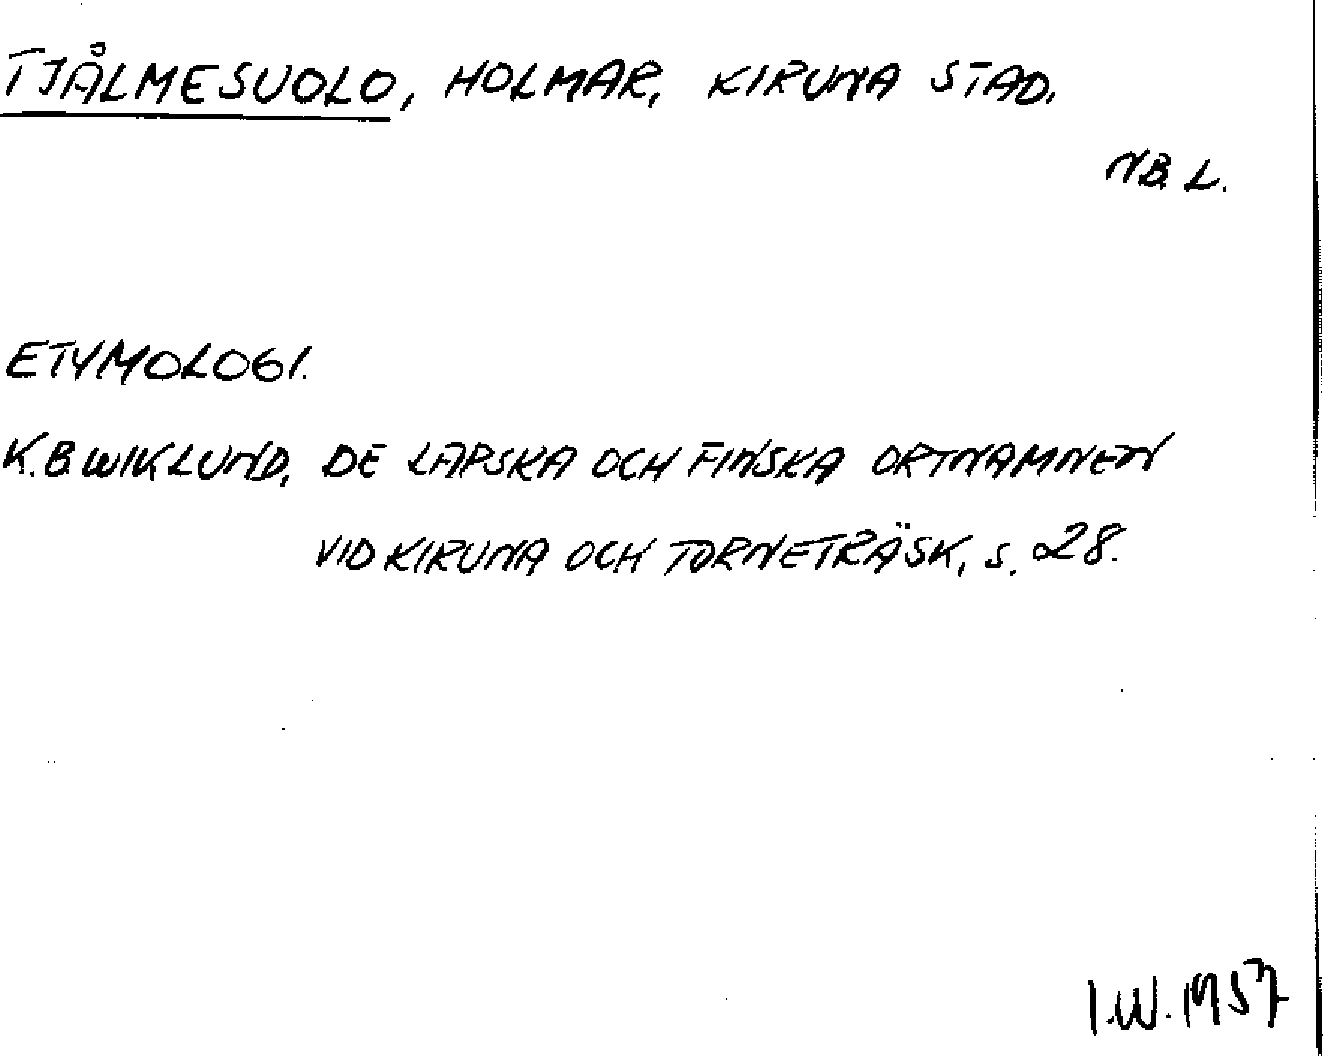 TJÅLMESUOLO, HOLMAR, KIRUNA STAD.
NB. L.
ETYMOLOGI.
K.B WIKLUND, DE LAPSKA OCH FINSKA ORTNAMNEN
VID KIRUNA OCH TORNETRÄSK, s. 28.
I.W. 1957